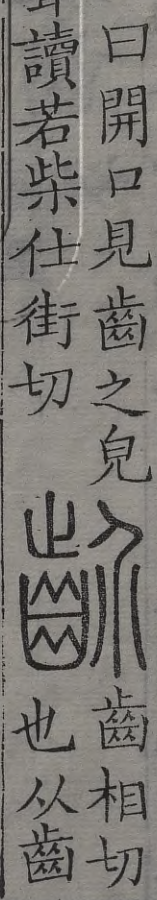 曰開口見齒之皃
讀若柴仕街切
齘
齒相切
也从齒